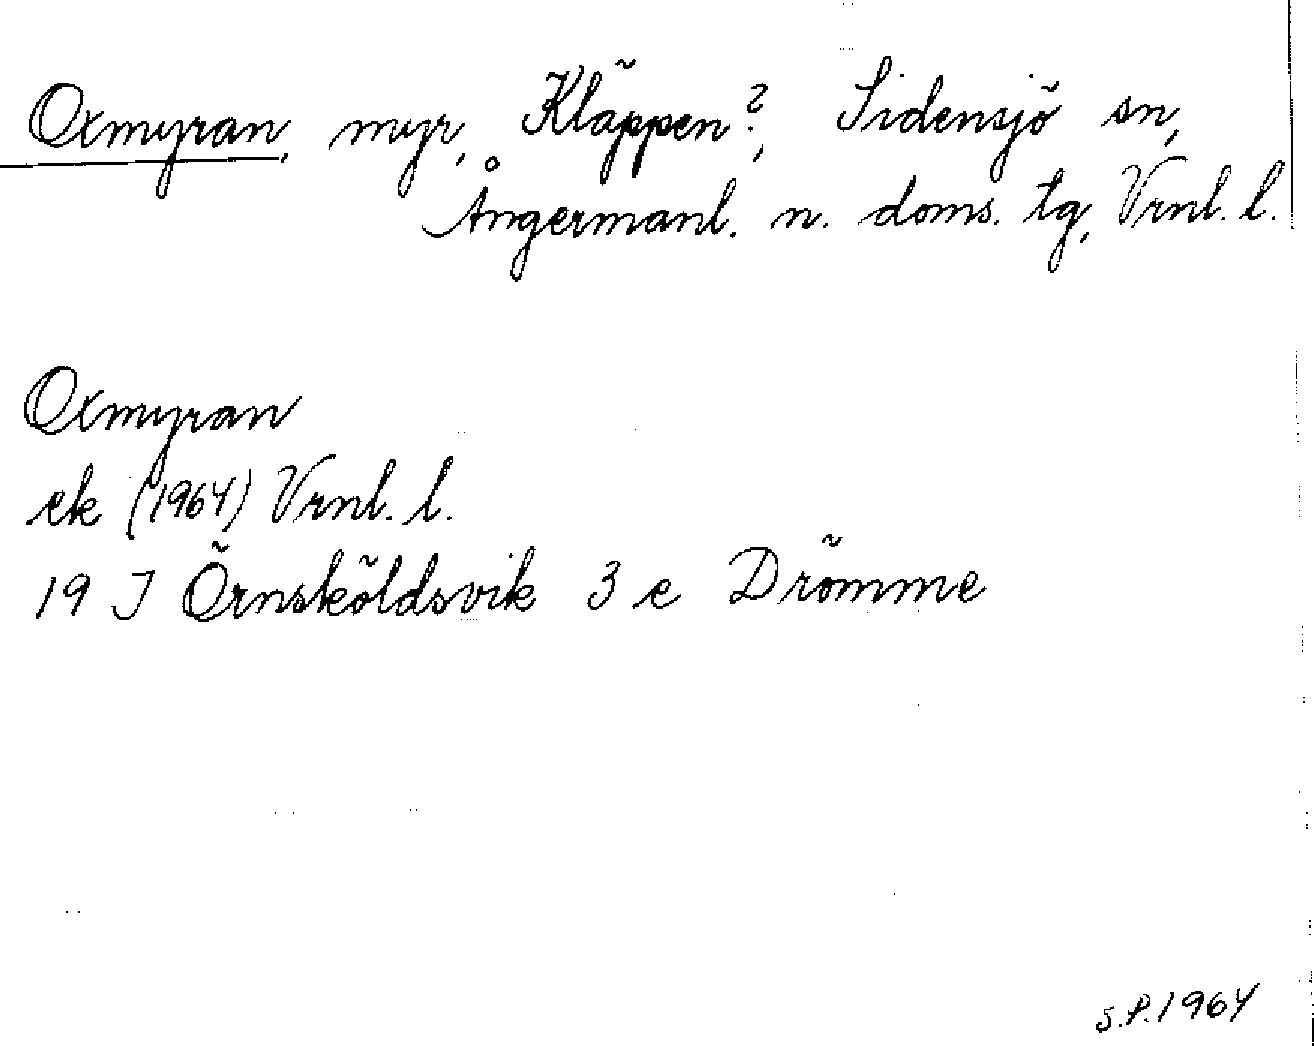 Oxmyran, myr, Kläppen?, Sidensjö sn,
Ångermanl. n. doms. tg, Vrnl. l.
Oxmyran
ek (1964) Vrnl. l.
19 J Örnsköldsvik 3 e Drömme
S.P. 1964